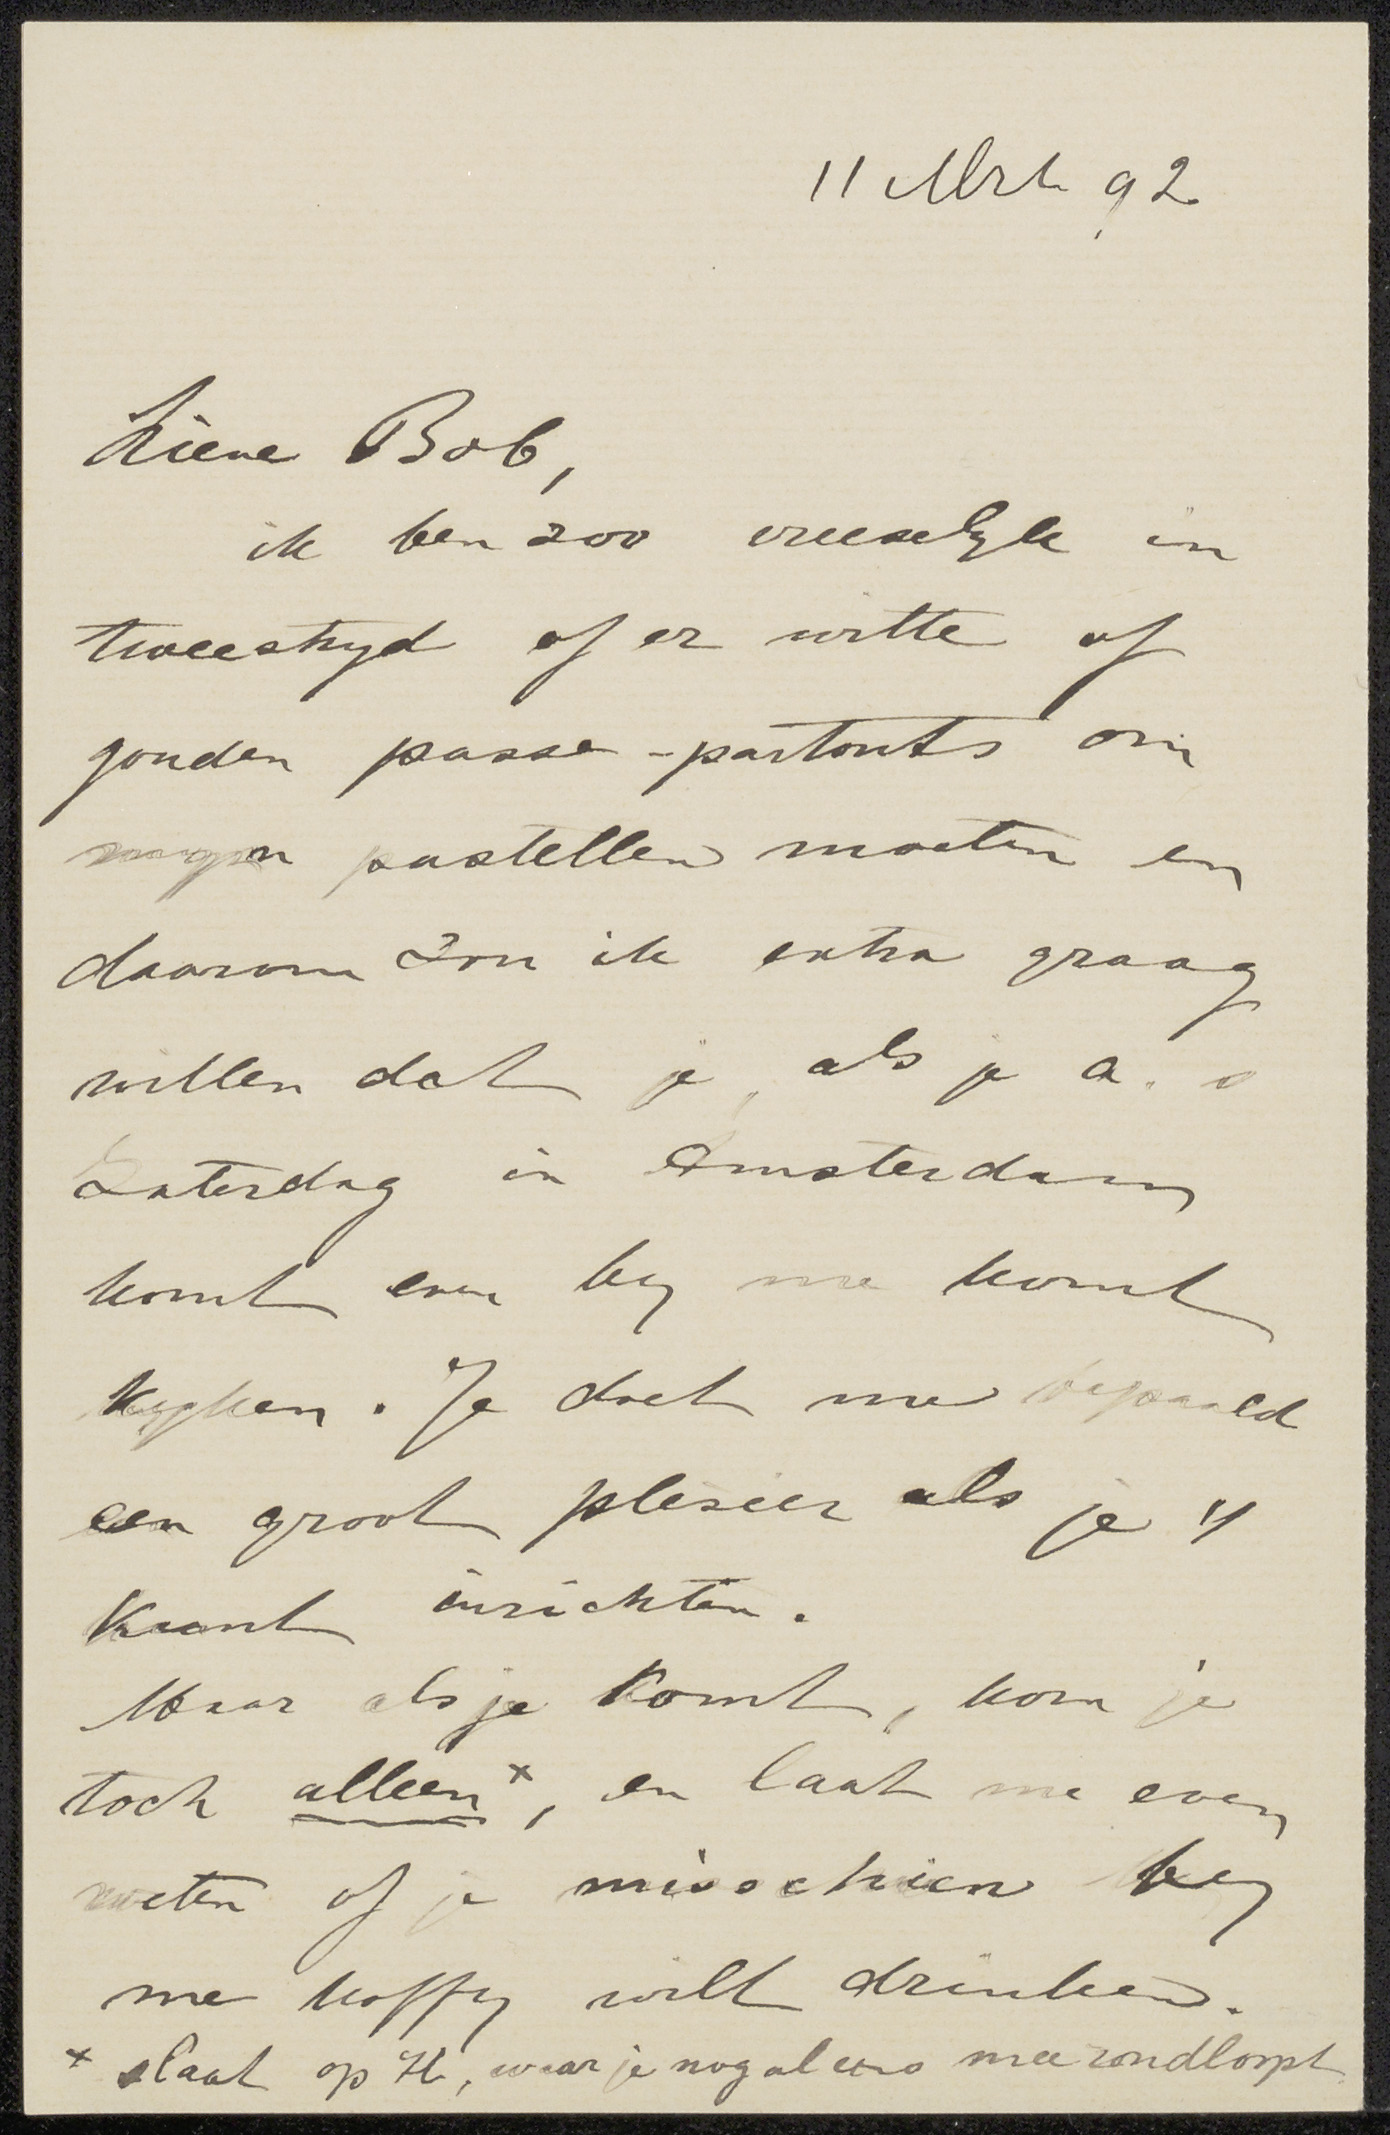 11 Mrt 92
Lieve Bob,
ik ben zoo vreeselyk in
tweestryd of er witte of
gouden passe-partouts om
myn pastellen moeten en
daarom zou ik extra graag
willen dat je, als je a.s
Zaterdag in Amsterdam
komt even by me komt
kyken. Je doet me bepaald
een groot plesier als je 't
kunt inrichten.
Maar als je komt, kom je
toch alleen x, en laat me even
weten of je misschien by
me koffy wilt drinken.
x slaat op H, waar je nogaleens mee rondloopt.